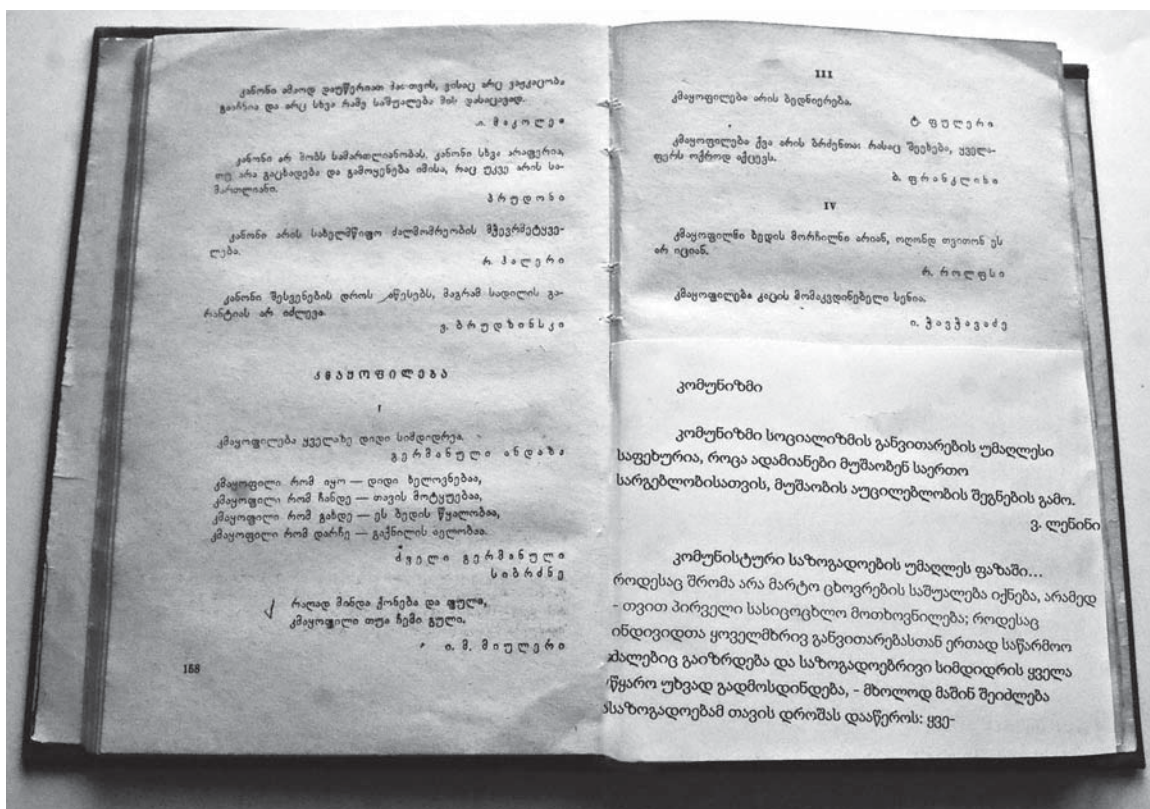 კანონი ამაოდ დაუწერიათ მათთვის, ვისაც არც ვაჟკაცობა
გააჩნია და არც სხვა რამე საშუალება მის დასაცავად.
მაკოლეი
კანონი არ შობს სამართლიანობას. კანონი სხვა არაფერია,
თუ არა გაცხადება და გამოყენება იმისა, რაც უკვე არის სა-
მართლიანი.
პრუდონი
კანონი არის სახელმწიფო ძალმომრეობის მჭევრმეტყვე-
ლება.
რ. ჰალერი
კანონი შესვენების დროს აწესებს, მაგრამ სადილის გა-
რანტიას არ იძლევა.
ვ. ბრუდზინსკი
კმაყოფილება
I
კმაყოფილება ყველაზე დიდი სიმდიდრეა.
გერმანული ანდაზა
კმაყოფილი რომ იყო — დიდი ხელოვნებაა,
კმაყოფილი რომ ჩანდე — თავის მოტყუებაა,
კმაყოფილი რომ გახდე — ეს ბედის წყალობაა,
კმაყოფილი რომ დარჩე — გაქნილის ალღოა.
ძველი გერმანული
სიბრძნე
რაღად მინდა ქონება და ფული,
კმაყოფილი თუა ჩემი გული.
ი. მ. მიულერი
158
III
კმაყოფილება არის ბედნიერება.
ტ. ფულერი
კმაყოფილება ქვა არის ბრძენთა: რასაც შეეხება, ყველა-
ფერს ოქროდ აქცევს.
ბ. ფრანკლინი
IV
კმაყოფილნი ბედის მორჩილნი არიან, ოღონდ თვითონ ეს
არ იციან.
რ. როლფსი
კმაყოფილება კაცის მომაკვდინებელი სენია.
ი. ჭავჭავაძე
კომუნიზმი
კომუნიზმი სოციალიზმის განვითარების უმაღლესი
საფეხურია, როცა ადამიანები მუშაობენ საერთო
სარგებლობისათვის, მუშაობის აუცილებლობის შეგნების გამო.
ვ. ლენინი
კომუნისტური საზოგადოების უმაღლეს ფაზაში...
როდესაც შრომა არა მარტო ცხოვრების საშუალება იქნება, არამედ
- თვით პირველი სასიცოცხლო მოთხოვნილება; როდესაც
ინდივიდთა ყოველმხრივ განვითარებასთან ერთად საწარმოო
ძალებიც გაიზრდება და საზოგადოებრივი სიმდიდრის ყველა
წყარო უხვად გადმოსდინდება, - მხოლოდ მაშინ შეიძლება
საზოგადოებამ თავის დროშას დააწეროს: ყვე-